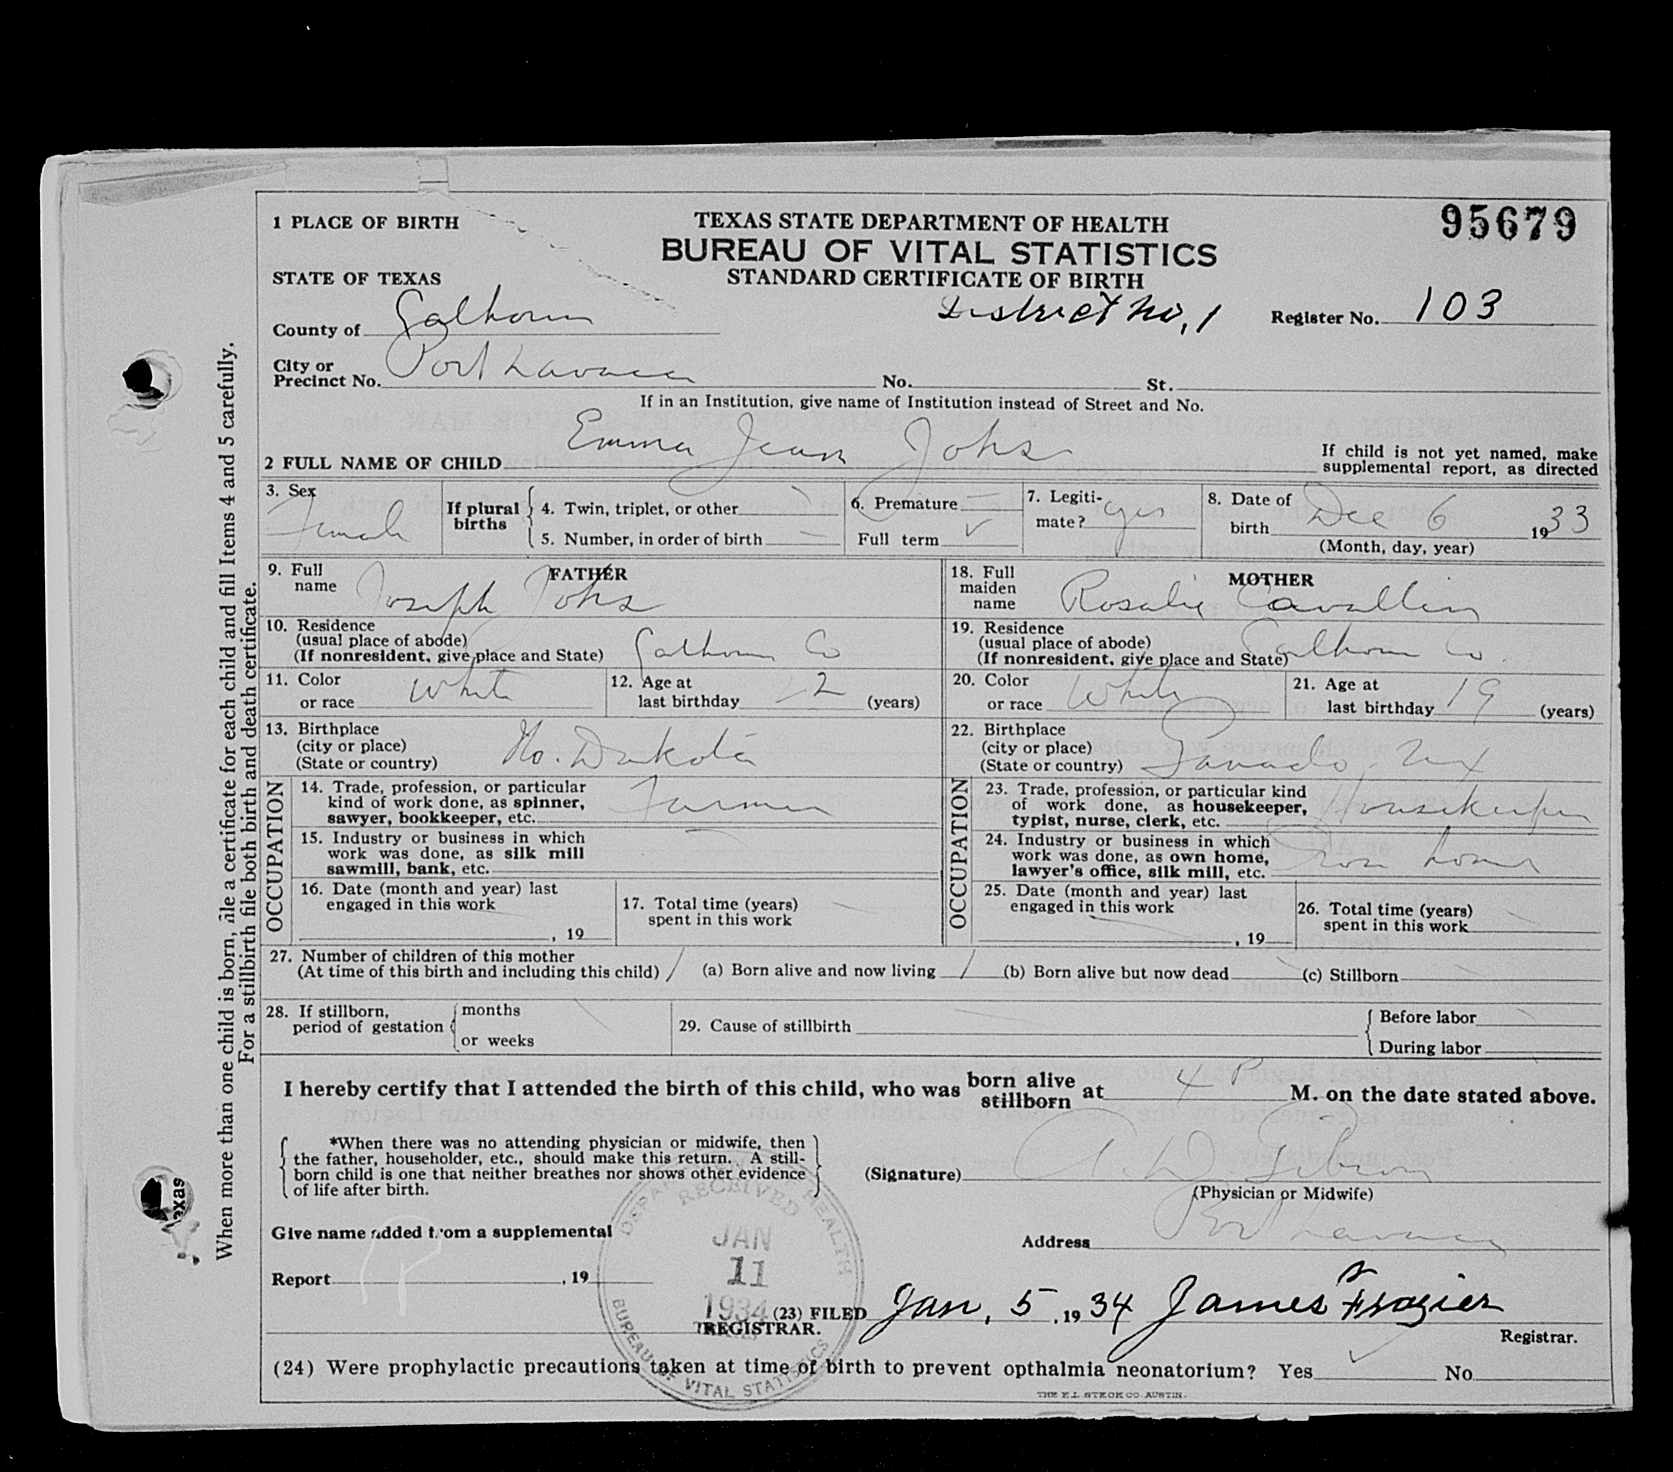 1 PLACE OF BIRTH
TEXAS STATE DEPARTMENT OF HEALTH
95679
BUREAU OF VITAL STATISTICS
STATE OF TEXAS
STANDARD CERTIFICATE OF BIRTH
County of Calhoun
District No. 1
Register No. 103
City or Precinct No. Port Lavaca No. St.
If in an Institution, give name of Institution instead of Street and No.
2 FULL NAME OF CHILD Emma Jean Johs
If child is not yet named, make
supplemental report, as directed
3. Sex Female
If plural births
4. Twin, triplet, or other
5. Number, in order of birth
6. Premature
Full term ✓
7. Legiti-
mate? yes
8. Date of
birth Dec 6 1933
(Month, day, year)
FATHER
9. Full
name Joseph Johs
10. Residence
(usual place of abode)
(If nonresident, give place and State) Calhoun Co
11. Color
or race White
12. Age at
last birthday 22 (years)
13. Birthplace
(city or place)
(State or country) No. Dakota
OCCUPATION
14. Trade, profession, or particular
kind of work done, as spinner,
sawyer, bookkeeper, etc. Farmer
15. Industry or business in which
work was done, as silk mill
sawmill, bank, etc.
16. Date (month and year) last
engaged in this work
, 19
17. Total time (years)
spent in this work
MOTHER
18. Full
maiden
name Rosalie Cavallin
19. Residence
(usual place of abode)
(If nonresident, give place and State) Calhoun Co.
20. Color
or race White
21. Age at
last birthday 19 (years)
22. Birthplace
(city or place)
(State or country) Ganado, Tex
OCCUPATION
23. Trade, profession, or particular kind
of work done, as housekeeper,
typist, nurse, clerk, etc. Housekeeper
24. Industry or business in which
work was done, as own home,
lawyer's office, silk mill, etc. home
25. Date (month and year) last
engaged in this work
, 19
26. Total time (years)
spent in this work
27. Number of children of this mother
(At time of this birth and including this child) / (a) Born alive and now living / (b) Born alive but now dead (c) Stillborn
28. If stillborn,
period of gestation
months
or weeks
29. Cause of stillbirth
Before labor
During labor
I hereby certify that I attended the birth of this child, who was born alive stillborn at 4 P M. on the date stated above.
*When there was no attending physician or midwife, then
the father, householder, etc., should make this return. A still-
born child is one that neither breathes nor shows other evidence
of life after birth.
(Signature)
(Physician or Midwife)
Give name added from a supplemental
Address Port Lavaca
Report , 19
(23) FILED Jan, 5, 1934 James Frazier
REGISTRAR.
Registrar.
(24) Were prophylactic precautions taken at time of birth to prevent opthalmia neonatorium? Yes ✓ No
THE E.L. STECK CO. AUSTIN.
RECEIVED
JAN
11
1934
BUREAU OF VITAL STATISTICS
When more than one child is born, file a certificate for each child and fill Items 4 and 5 carefully.
For a stillbirth file both birth and death certificate.
exas